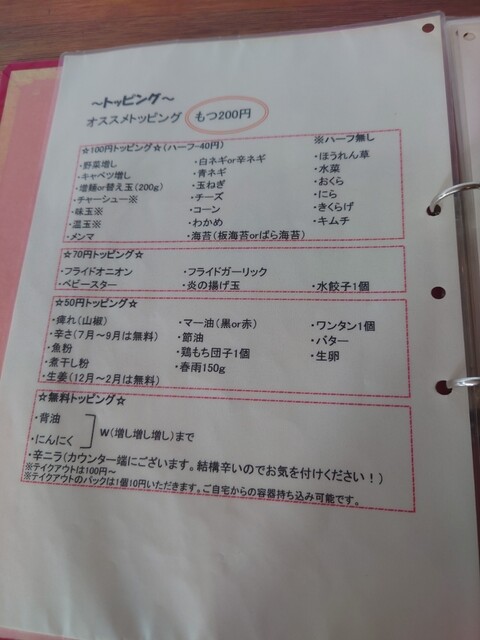 ～トッピング～
オススメトッピング もつ200円
☆100円トッピング☆(ハーフ-40円) ※ハーフ無し
・野菜増し ・白ネギor辛ネギ ・ほうれん草
・キャベツ増し ・青ネギ ・水菜
・増麺or替え玉(200g) ・玉ねぎ ・おくら
・チャーシュー※ ・チーズ ・にら
・味玉※ ・コーン ・きくらげ
・温玉※ ・わかめ ・キムチ
・メンマ ・海苔(板海苔orばら海苔)
☆70円トッピング☆
・フライドオニオン ・フライドガーリック
・ベビースター ・炎の揚げ玉 ・水餃子1個
☆50円トッピング☆
・痺れ(山椒) ・マー油(黒or赤) ・ワンタン1個
・辛さ(7月～9月は無料) ・節油 ・バター
・魚粉 ・鶏もち団子1個 ・生卵
・煮干し粉 ・春雨150g
・生姜(12月～2月は無料)
☆無料トッピング☆
・背油
・にんにく W(増し増し増し)まで
・辛ニラ(カウンター端にございます。結構辛いのでお気を付けください！)
※テイクアウトは100円～
※テイクアウトのパックは1個10円いただきます。ご自宅からの容器持ち込み可能です。